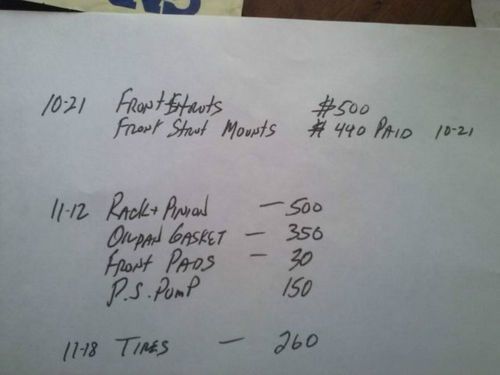 10-21 Front Struts $500
Front Strut Mounts $ 440 PAID 10-21
11-12 RACK + PINION — 500
OILPAN GASKET — 350
FRONT PADS — 30
P.S. PUMP 150
11-18 TIRES — 260